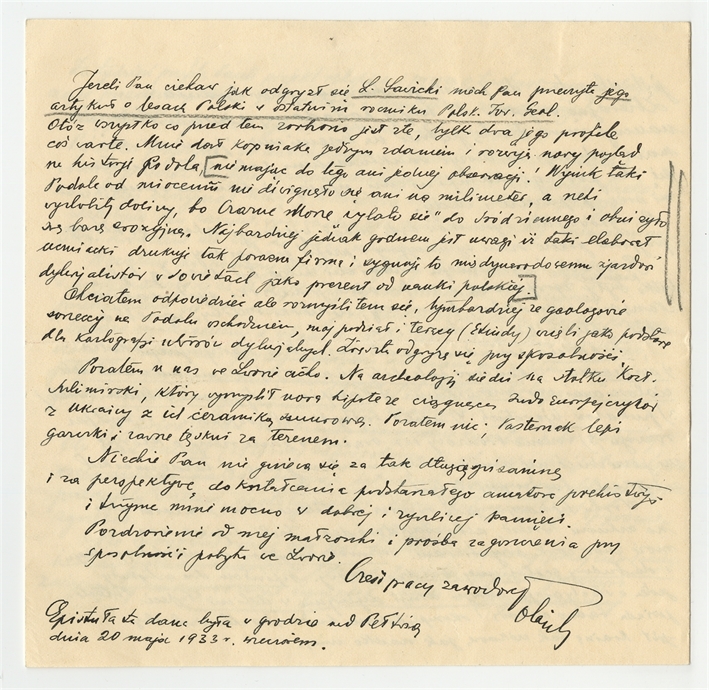 Jeżeli Pan ciekaw jak odgryzł się L. Sawicki niech Pan przeczyta jego
artykuł o lesach Polski w ostatnim roczniku Polsk. Tow. Geol.
Otóż wszystko co przed tem zrobiono jest złe, tylko dwa jego profile
coś warte. Mnie dał kopniaka jednym zdaniem i rozwija nowy pogląd
na historji Podola, nie mając do tego ani jednej obserwacji! Wynik taki
Podole od miocenu nie dźwignęło się ani na milimeter, a rzeki
wyżłobiły doliny, bo Czarne Morze „wylało się" do śródziemnego i obniżyło
swą bazę erozyjną. Najbardziej jednak godnem jest uwagi iż taki elaborat
drukuje tak poważna firma i sygnuje to międzynarodowemu zjazdowi
dyluwjalistów w Sowietach jako prezent od nauki polskiej.
Chciałem odpowiedzieć ale rozmyśliłem się, tymbardziej że geologowie
sowieccy na Podolu wschodniem, mój podział i terasy wzięli jako podstawę
dla kartografji utworów dyluwjalnych. Zresztą odgryzę się przy sposobności.
Pozatem u nas we Lwowie cicho. Na archeologji siedzi na stołku Kozł.
Sulimirski, który wymyślił nową hipotezę ciągnącą Indoeuropejczyków
z Ukrainy z ich ceramiką sznurową. Pozatem nic; Pasternak lepi
garnki i rzewnie tęskni za terenem.
Niechże Pan nie gniewa się za tak długą pisaninę
i za perspektywę dokształcenia podstarzałego amatora prehistorji
i trzyma mnie mocno w dobrej i życzliwej pamięci.
Pozdrowienie od mej małżonki i prośba zagoszczenia przy
sposobności pobytu we Lwowie.
Cześć pracy zawodowej
Epistuła ta dana była w grodzie nad Pełtwią
dnia 20 maja 1933 r. wieczorem.